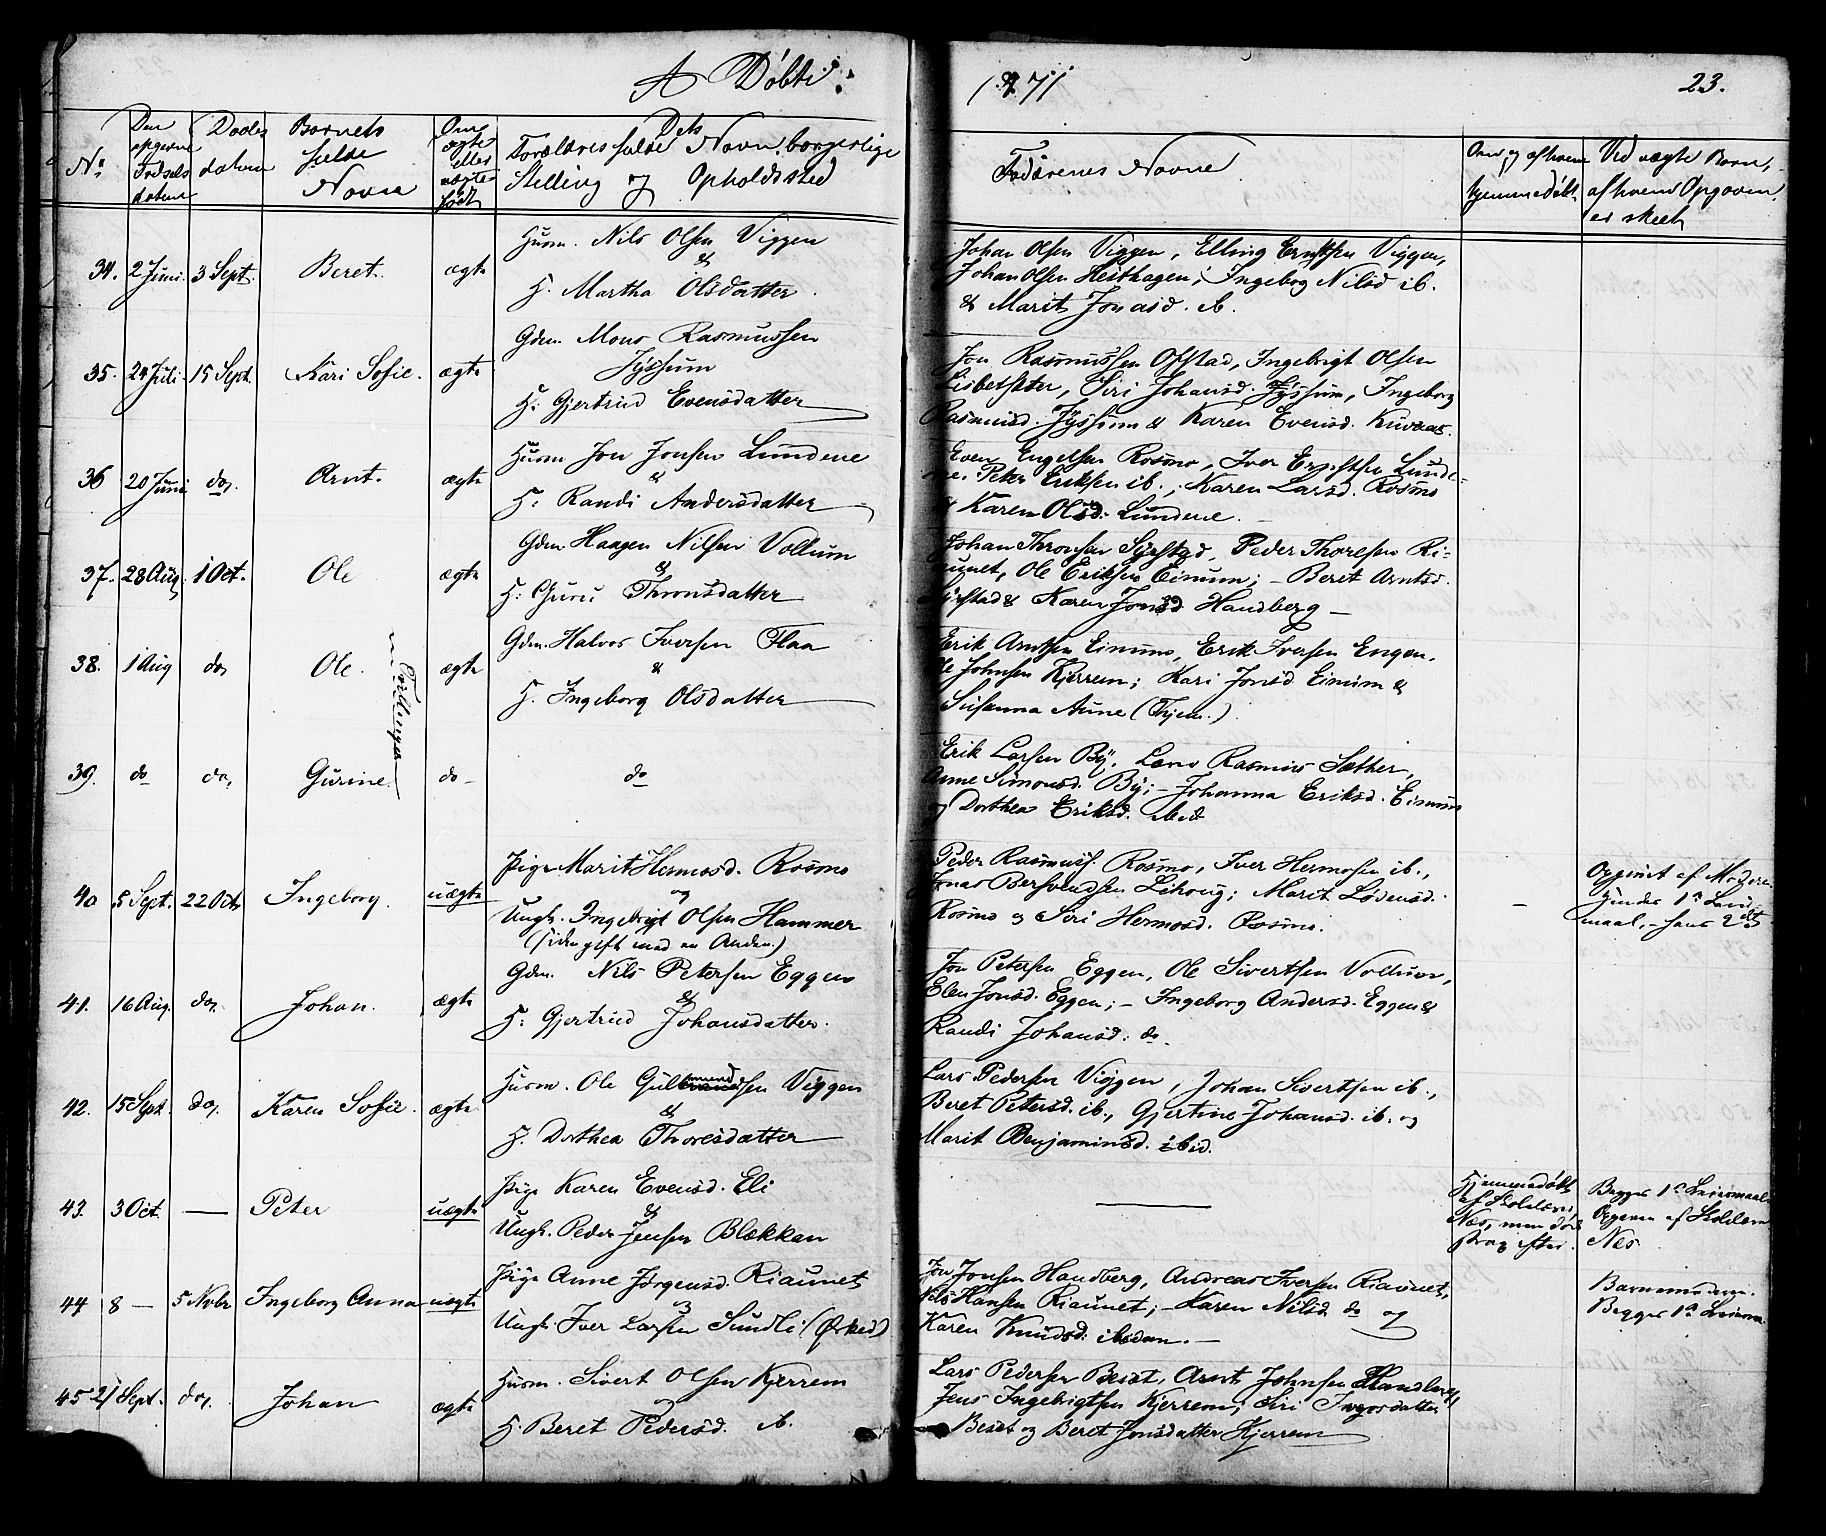 A Døbte.
1871
23.
No
Den opgivne Fødsels datum
Daabs datum
Barnets fulde Navn
Om ægte eller uægte født
Dets Forældres fulde Navn, borgerlige Stilling og Opholdssted
Faddernes Navne
Om og af hvem hjemmedøbt
Ved uægte Børn, af hvem Opgaven er skeet
34. 2 Juni 3 Sept. Beret. ægte
Husm. Nils Olsen Viggen
&
H. Martha Olsdatter
Johan Olsen Viggen, Elling Erntsen Viggen,
Johan Olsen Hesthagen; Ingeborg Nilsd ib.
& Marit Jonasd. ib.
35. 24 Juli 15 Sept. Kari Sofie. ægte
Gdm. Mons Rasmussen
Jyssum
H: Gjertrud Evensdatter
Jon Rasmussen Ofstad, Ingebrigt Olsen
Lisbetsæter, Siri Johansd. Jyssum, Ingeborg
Rasmusd. Jyssum & Karen Evensd. Kuvaas.
36 20 Juni do. Arnt. ægte
Husm Jon Jonsen Lundene
&
H: Randi Andersdatter
Even Engelsen Rosmo, Iver Erntsen Lunde-
ne. Peter Eriksen ib.; Karen Larsd. Rosmo
& Karen Olsd. Lundene.
37. 28 Aug. 1 Oct. Ole ægte
Gdm. Haagen Nilsen Vollum
&
H: Guru Thronsdatter
Johan Thronsen Syrstad, Peder Thoresen Ri-
aunet, Ole Eriksen Eimum; - Beret Arntsd.
Syrstad & Karen Jonsd Handberg -
38. 1 Aug do. Ole. ægte
Tvillinger
Gdm. Halvor Iversen Flaa
&
H. Ingeborg Olsdatter
Erik Arntsen Eimum, Erik Iversen Engen.
Ole Johnsen Kjerrem; Kari Jonsd Eimum &
Susanna Aune (Thjem.)
39. do do. Gurine do- do
Erik Larsen By, Lars Rasmus Sæther,
Anne Simonsd. By; - Johanna Eriksd. Eimum
og Dorthea Eriksd. ibid
40 5 Sept. 22 Oct. Ingeborg. uægte
Pige Marit Hermosd. Rosmo
og
Ungk. Ingebrigt Olsen Hammer
(siden gift med en Anden.)
Peder Rasmuss. Rosmo, Iver Hermosen ib.,
Jonas Bersvendsen Lihoug; Marit Lødensd.
Rosmo og Siri Hermosd. Rosmo.
-
Opgivet af Moderen
hendes 1ste Leier-
maal, - hans 2det
41. 16 Aug. do. Johan. ægte
Gdm. Nils Petersen Eggen
&
H: Gjertrud Johansdatter.
Jon Petersen Eggen, Ole Sivertsen Vollum,
Elen Jonsd. Eggen; - Ingeborg Andersd. Eggen &
Randi Johansd. do.
42. 15 Sept. do. Karen Sofie. ægte
Husm. Ole Gulbrandsen Viggen
&
H. Dorthea Thoresdatter
Lars Pedersen Viggen, Johan Sivertsen ib.,
Beret Petersd. ib., Gjertine Johansd. ib. og
Marit Benjaminsd. ibid.
43. 3 Oct. — Peter uægte
Pige Karen Evensd. Eli
&
Ungk. Peder Jensen Blækkan
—
Hjemmedøbt
af Skolelærer
Næs, men døde
strax efter.
Begges 1ste Leiermaal
Opgiven af Skolelærer
Næs
44 8 — 5 Nvbr Ingeborg Anna uægte
Pige Anne Jørgensd. Riaunet
og
Ungk. Iver Larsen Sundli (Ørkedl)
Jon Jonsen Handberg, Andreas Iversen Riaunet,
Nils Hansen Riaunet; - Karen Nilsd do og
Karen Knudsd. ibidem. -
Barnemoderen.
Begges 1ste Leierm.
45 21 Sept. do. Johan ægte
Husm. Sivert Olsen Kjerrem
og
H. Beret Pedersd. ib.
Lars Pedersen Beset, Arnt Johnsen Handberg,
Jens Ingebrigtsen Kjerrem; Siri Ingorsdatter
Beset og Beret Jonsdatter Kjerrem